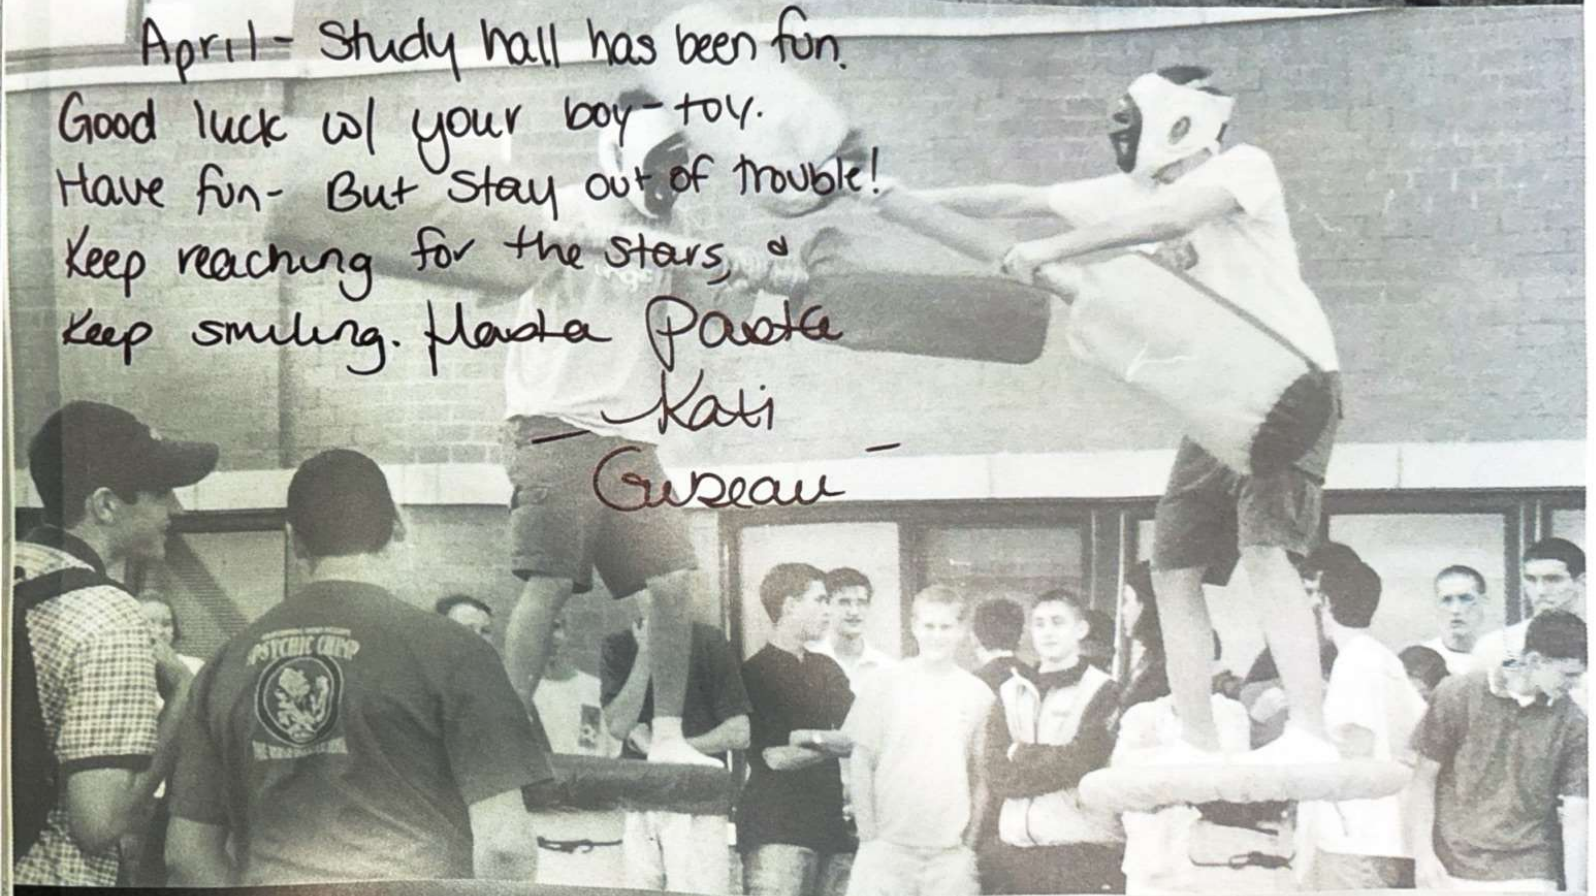 April - Study hall has been fun.
Good luck w/ your boy-toy.
Have fun - But stay out of trouble!
Keep reaching for the stars, &
Keep smiling. Hasta Pasta
- Kati -
PSYCHIC CHIMP